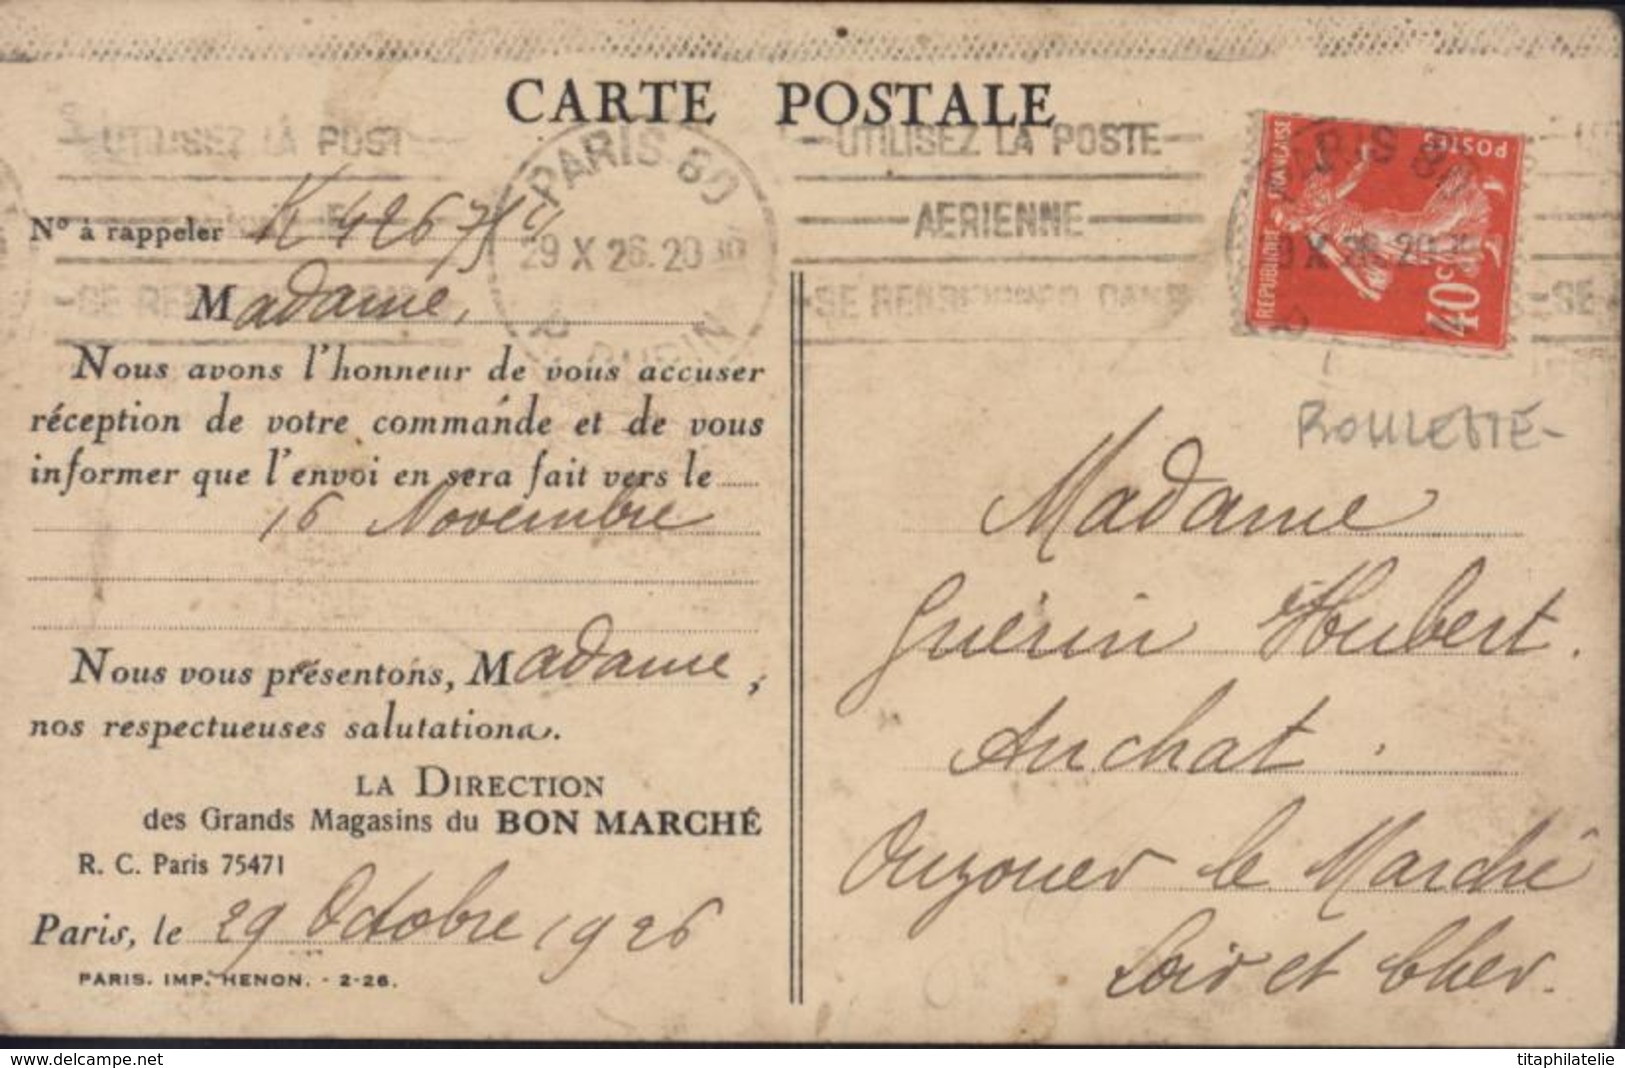 CARTE POSTALE
UTILISEZ LA POST
PARIS 80
29 X 26. 20 30
R. DUPIN
UTILISEZ LA POSTE
AERIENNE
SE RENSEIGNER DANS
RÉPUBLIQUE FRANÇAISE
POSTES
40 c
ROULETTE
N° à rappeler K 42675
Madame,
Nous avons l'honneur de vous accuser
réception de votre commande et de vous
informer que l'envoi en sera fait vers le
16 Novembre
Nous vous présentons, Madame,
nos respectueuses salutations.
LA DIRECTION
des Grands Magasins du BON MARCHÉ
R. C. Paris 75471
Paris, le 29 Octobre 1926
PARIS. IMP. HENON. - 2-26.
Madame
Guérin Hubert.
Auchat.
Ouzouer le Marché
Loir et Cher.
www.delcampe.net
titaphilatelie